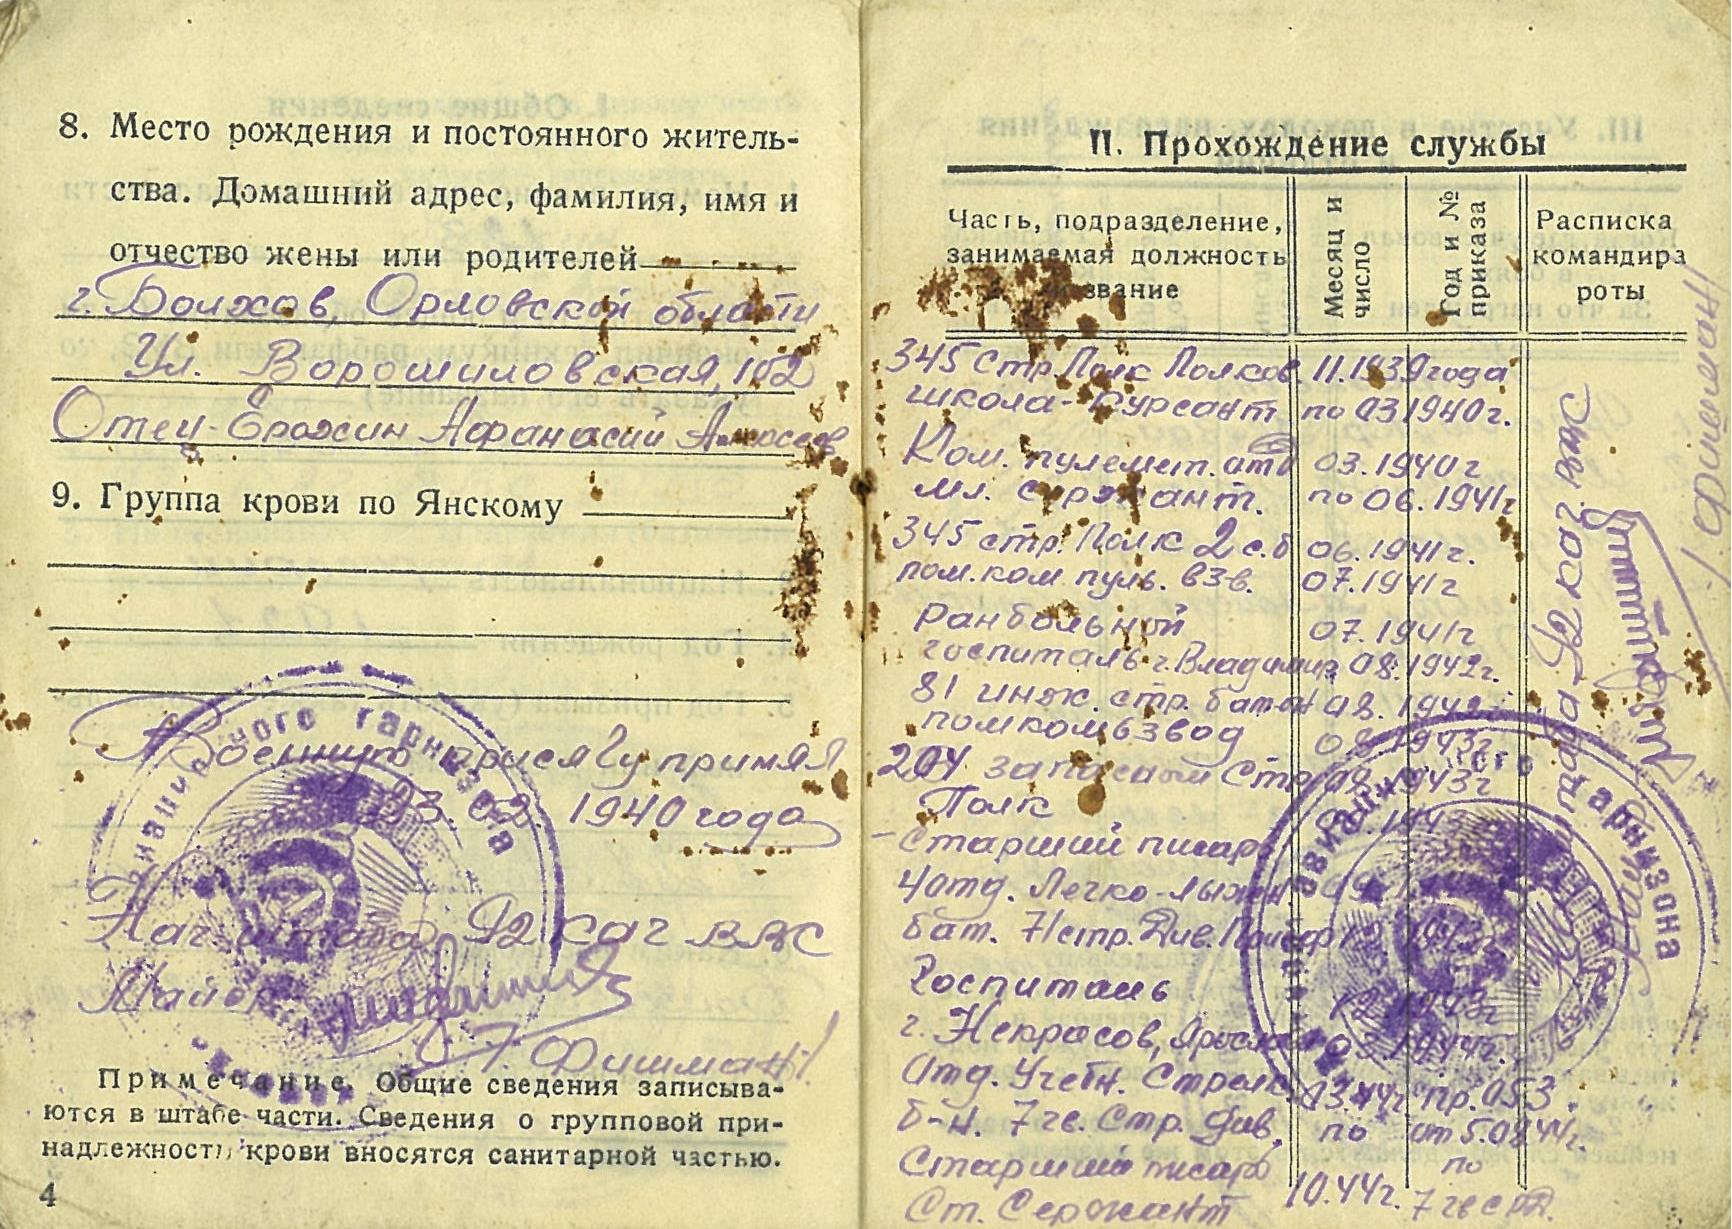 8. Место рождения и постоянного житель-
ства. Домашний адрес, фамилия, имя и
отчество жены или родителей
г. Болхов, Орловской области
Ул. Ворошиловская, 102
Отец - Ерохин Афанасий
9. Группа крови по Янскому
Военную присягу принял
23.02. 1940 года
Нач. штаба 92 каг ВВС
Майор
/Фишман/
Примечание. Общие сведения записыва-
ются в штабе части. Сведения о групповой при-
надлежности крови вносятся санитарной частью.
4
II. Прохождение службы
Часть, подразделение, занимаемая должность и звание
Месяц и число
Год и № приказа
Расписка командира роты
345 Стр. Полк Полков. 11.1939 года
школа - Курсант по 03 1940 г.
Ком. пулемет. отд 03.1940 г
мл. сержант. по 06.1941 г
345 стр. Полк 2 с.б 06.1941 г.
пом. ком. пуль. взв. 07.1941 г
Ранбольной 07.1941 г
госпиталь г. Владимир 08.1942 г.
81 инж. стр. бат-он 08.1942 г
помкомвзвод 08.1943 г.
204 запасной Стр 08.1943 г
Полк
- Старший писарь
4 отд. Легко-лыжн
бат. 71 стр. Див. Писарь 1943 г.
Госпиталь 12.1943 г
г. Некрасов, Яросл 03.1944 г.
Отд. Учебн. Стрелк 03.44 г пр. 053
б-н. 7 гв. Стр. див, по от 5.08 44 г.
Старший писарь по
Ст. Сержант 10.44 г. 7 гв сд.
штаба 92 каг ввс
Майор
/Фишман/
гарнизона
гарнизона